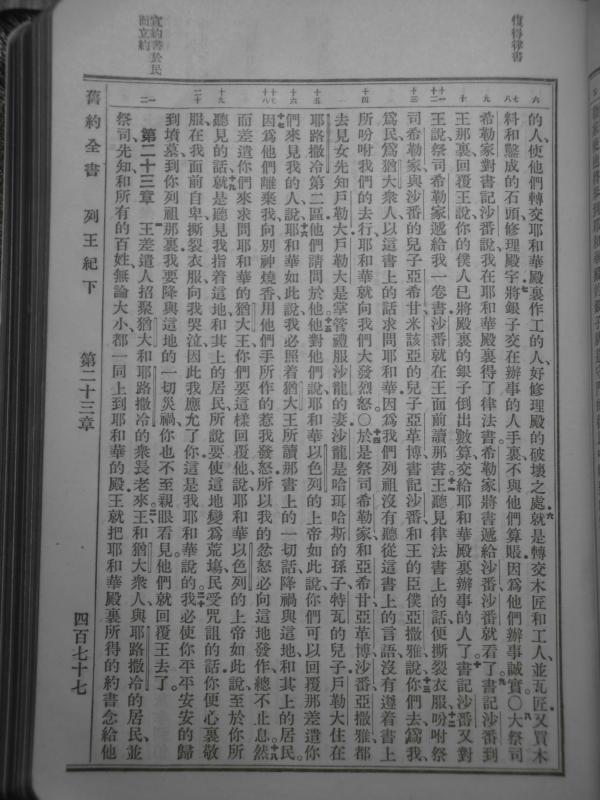 復得律書
宣約書於民
而立約
六 七 八 九 十 十一 十二 十三 十四 十五 十六 十七 十八 十九 二十 一 二
的人、使他們轉交耶和華殿裏作工的人、好修理殿的破壞之處、就是轉交木匠和工人、並瓦匠、又買木
料和鑿成的石頭、修理殿宇、將銀子交在辦事的人手裏、不與他們算賬、因為他們辦事誠實。〇大祭司
希勒家對書記沙番說、我在耶和華殿裏得了律法書、希勒家將書遞給沙番、沙番就看了、書記沙番到
王那裏、回覆王說、你的僕人已將殿裏的銀子倒出數算、交給耶和華殿裏辦事的人了、書記沙番又對
王說、祭司希勒家遞給我一卷書、沙番就在王面前讀那書。王聽見律法書上的話、便撕裂衣服、吩咐祭
司希勒家與沙番的兒子亞希甘、米該亞的兒子亞革博、書記沙番、和王的臣僕亞撒雅說、你們去為我、
為民、為猶大衆人、以這書上的話求問耶和華、因為我們列祖沒有聽從這書上的言語、沒有遵着書上
所吩咐我們的去行、耶和華就向我們大發烈怒。〇於是祭司希勒家和亞希甘、亞革博、沙番、亞撒雅、都
去見女先知戶勒大、戶勒大是掌管禮服沙龍的妻、沙龍是哈珥哈斯的孫子、特瓦的兒子、戶勒大住在
耶路撒冷第二區、他們請問於他、他對他們說、耶和華以色列的上帝如此說、你們可以回覆那差遣你
們來見我的人說、耶和華如此說、我必照着猶大王所讀那書上的一切話、降禍與這地、和其上的居民。
因為他們離棄我、向別神燒香、用他們手所作的惹我發怒、所以我的忿怒必向這地發作、總不止息、然
而差遣你們來求問耶和華的猶大王、你們要這樣回覆他說、耶和華以色列的上帝如此說、至於你所
聽見的話、就是聽見我指着這地和其上的居民所說、要使這地變為荒塲、民受咒詛的話、你便心裏敬
服、在我面前自卑、撕裂衣服、向我哭泣、因此我應允了你、這是我耶和華說的。我必使你平平安安的歸
到墳墓到你列祖那裏、我要降與這地的一切災禍、你也不至親眼看見、他們就回覆王去了。
第二十三章 王差遣人招聚猶大和耶路撒冷的衆長老來、王和猶大衆人、與耶路撒冷的居民、並
祭司、先知、和所有的百姓、無論大小、都一同上到耶和華的殿、王就把耶和華殿裏所得的約書念給他
舊約全書 列王紀下 第二十三章 四百七十七